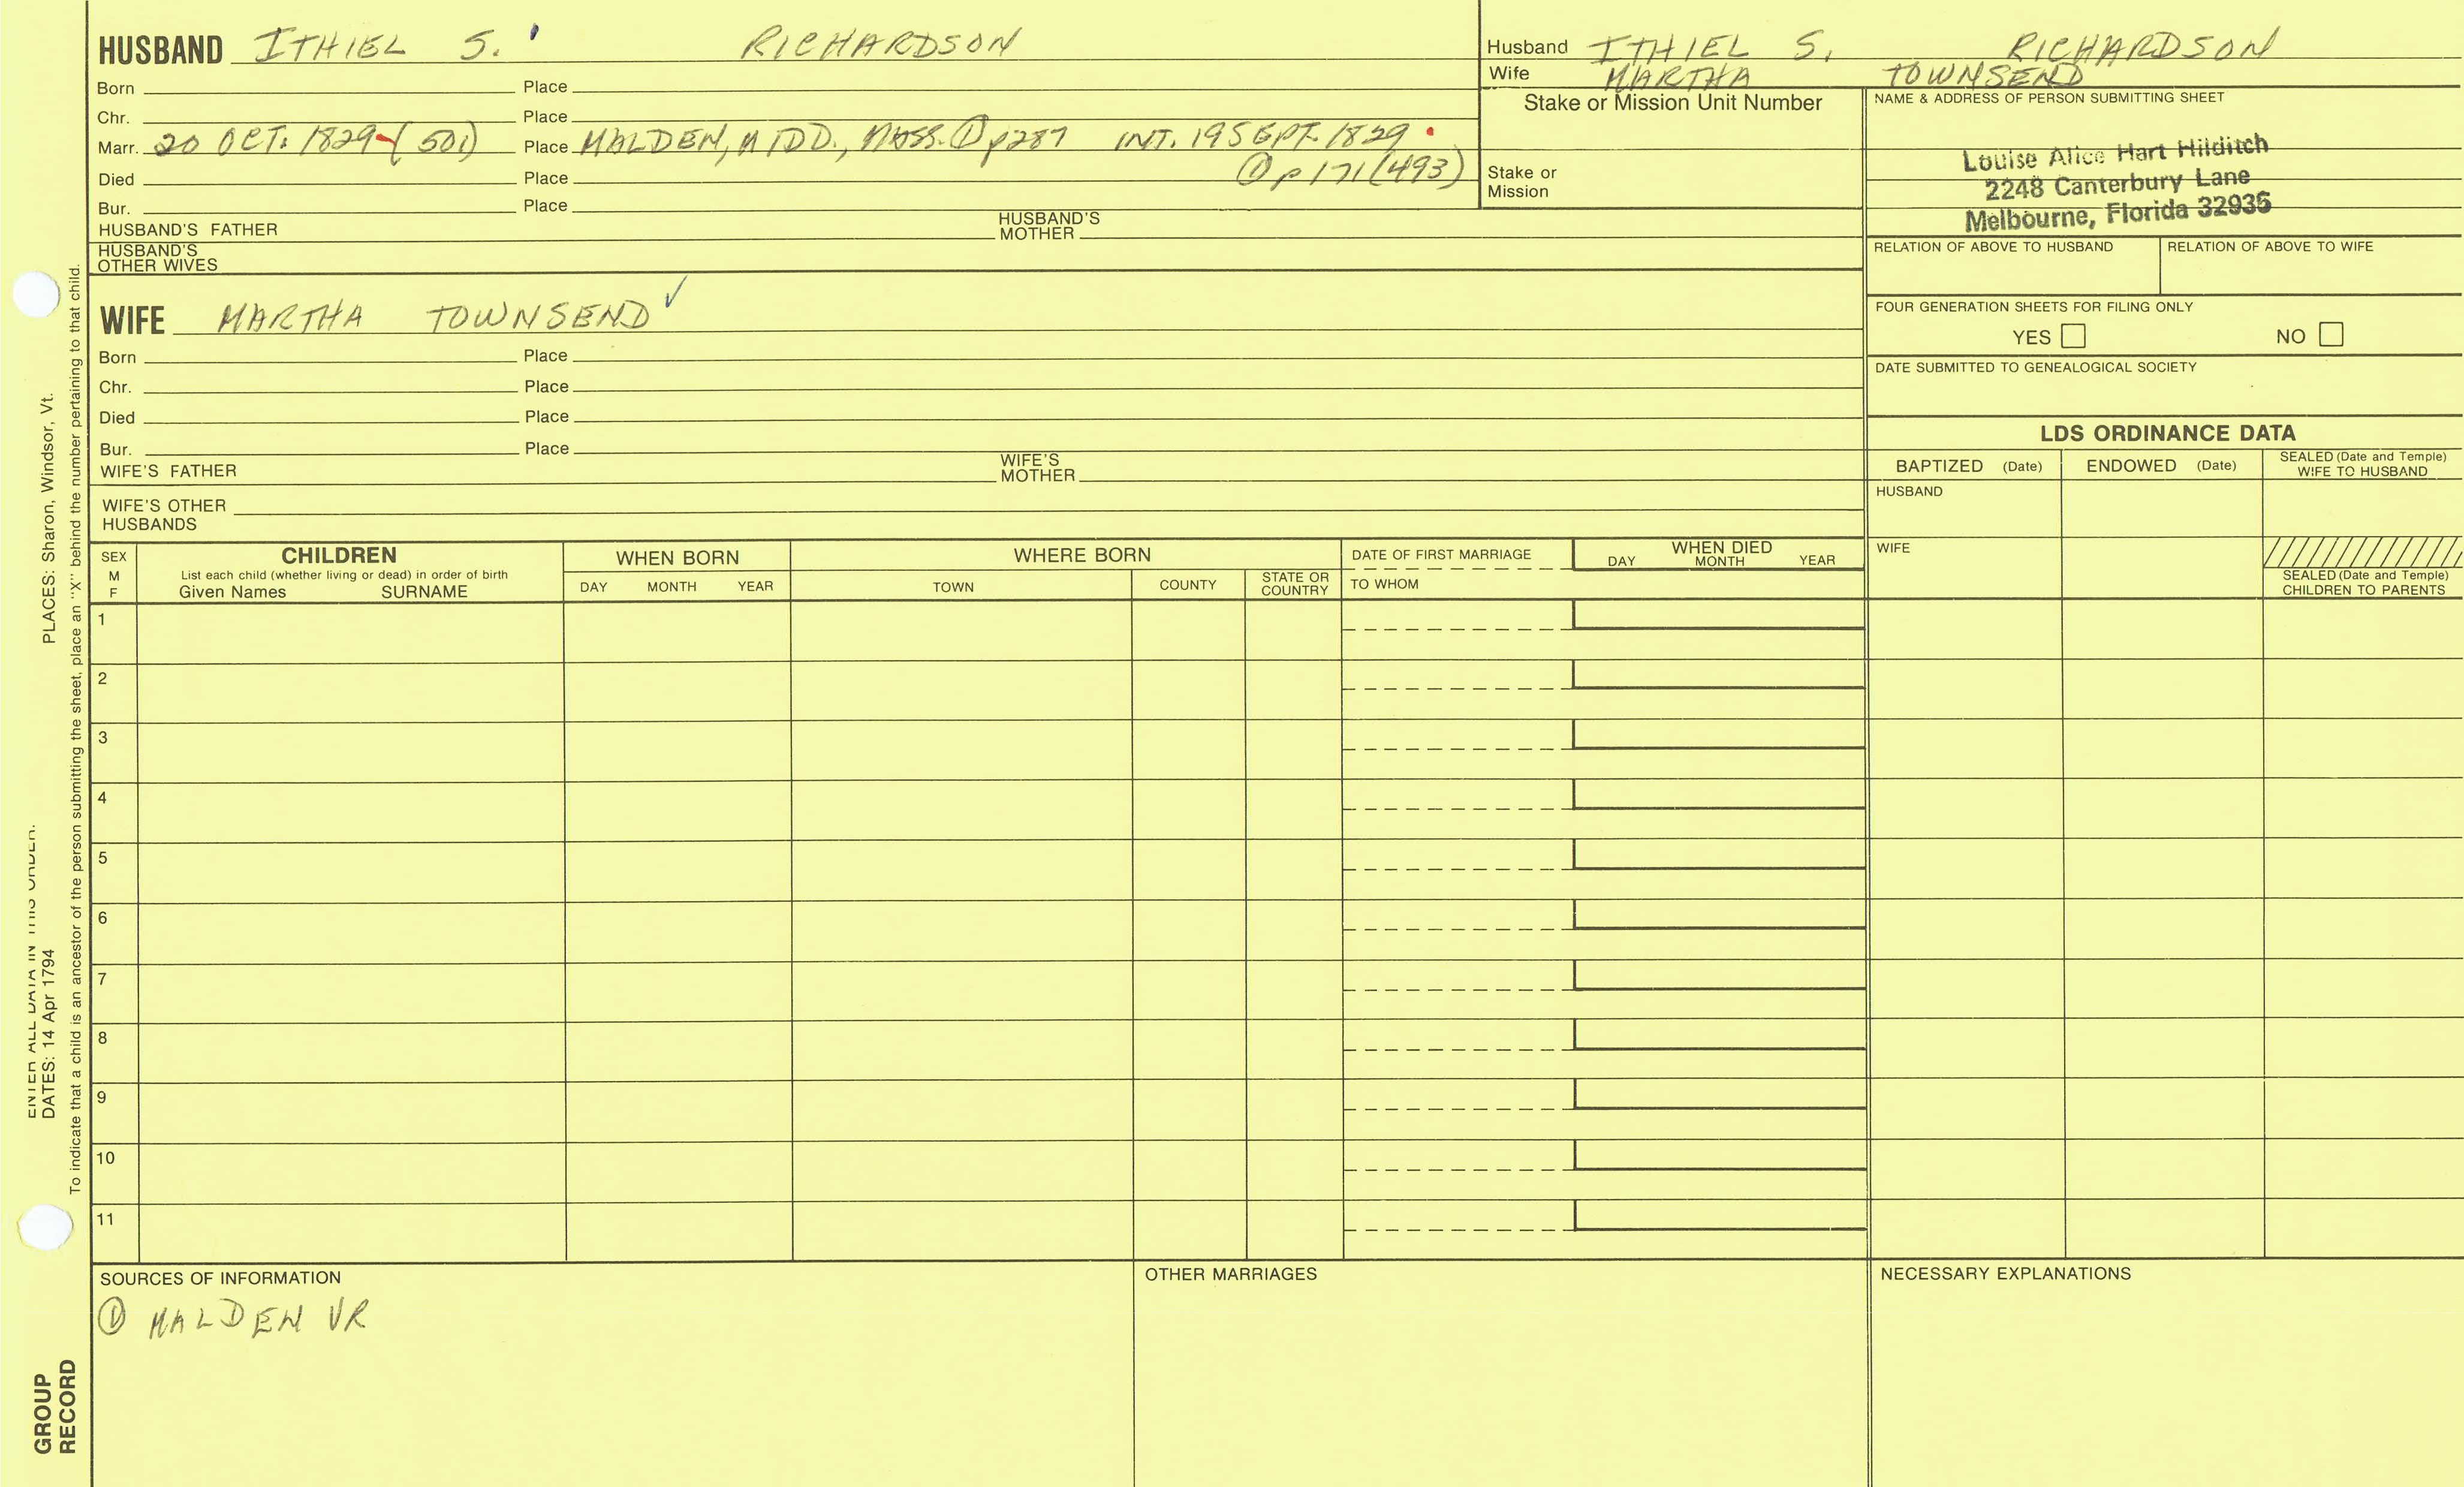 HUSBAND ITHIEL S. RICHARDSON
Born Place
Chr. Place
Marr. 20 OCT. 1829 (501) Place MALDEN, MIDD., MASS. ① p287 INT. 19 SEPT. 1829
① p171 (493)
Died Place
Bur. Place
HUSBAND'S FATHER HUSBAND'S MOTHER
HUSBAND'S OTHER WIVES
Husband ITHIEL S. RICHARDSON
Wife MARTHA TOWNSEND
Stake or Mission Unit Number
Stake or
Mission
NAME & ADDRESS OF PERSON SUBMITTING SHEET
Louise Alice Hart Hilditch
2248 Canterbury Lane
Melbourne, Florida 32935
RELATION OF ABOVE TO HUSBAND RELATION OF ABOVE TO WIFE
FOUR GENERATION SHEETS FOR FILING ONLY
YES NO
DATE SUBMITTED TO GENEALOGICAL SOCIETY
WIFE MARTHA TOWNSEND ✓
Born Place
Chr. Place
Died Place
Bur. Place
WIFE'S FATHER WIFE'S MOTHER
WIFE'S OTHER
HUSBANDS
LDS ORDINANCE DATA
BAPTIZED (Date) ENDOWED (Date) SEALED (Date and Temple) WIFE TO HUSBAND
HUSBAND
WIFE
SEALED (Date and Temple)
CHILDREN TO PARENTS
SEX
M
F
CHILDREN
List each child (whether living or dead) in order of birth
Given Names SURNAME
WHEN BORN
DAY MONTH YEAR
WHERE BORN
TOWN COUNTY STATE OR COUNTRY
DATE OF FIRST MARRIAGE
TO WHOM
WHEN DIED
DAY MONTH YEAR
1
2
3
4
5
6
7
8
9
10
11
SOURCES OF INFORMATION
① MALDEN VR
OTHER MARRIAGES
NECESSARY EXPLANATIONS
ENTER ALL DATA IN THIS ORDER.
DATES: 14 Apr 1794 PLACES: Sharon, Windsor, Vt.
To indicate that a child is an ancestor of the person submitting the sheet, place an "X" behind the number pertaining to that child.
GROUP
RECORD